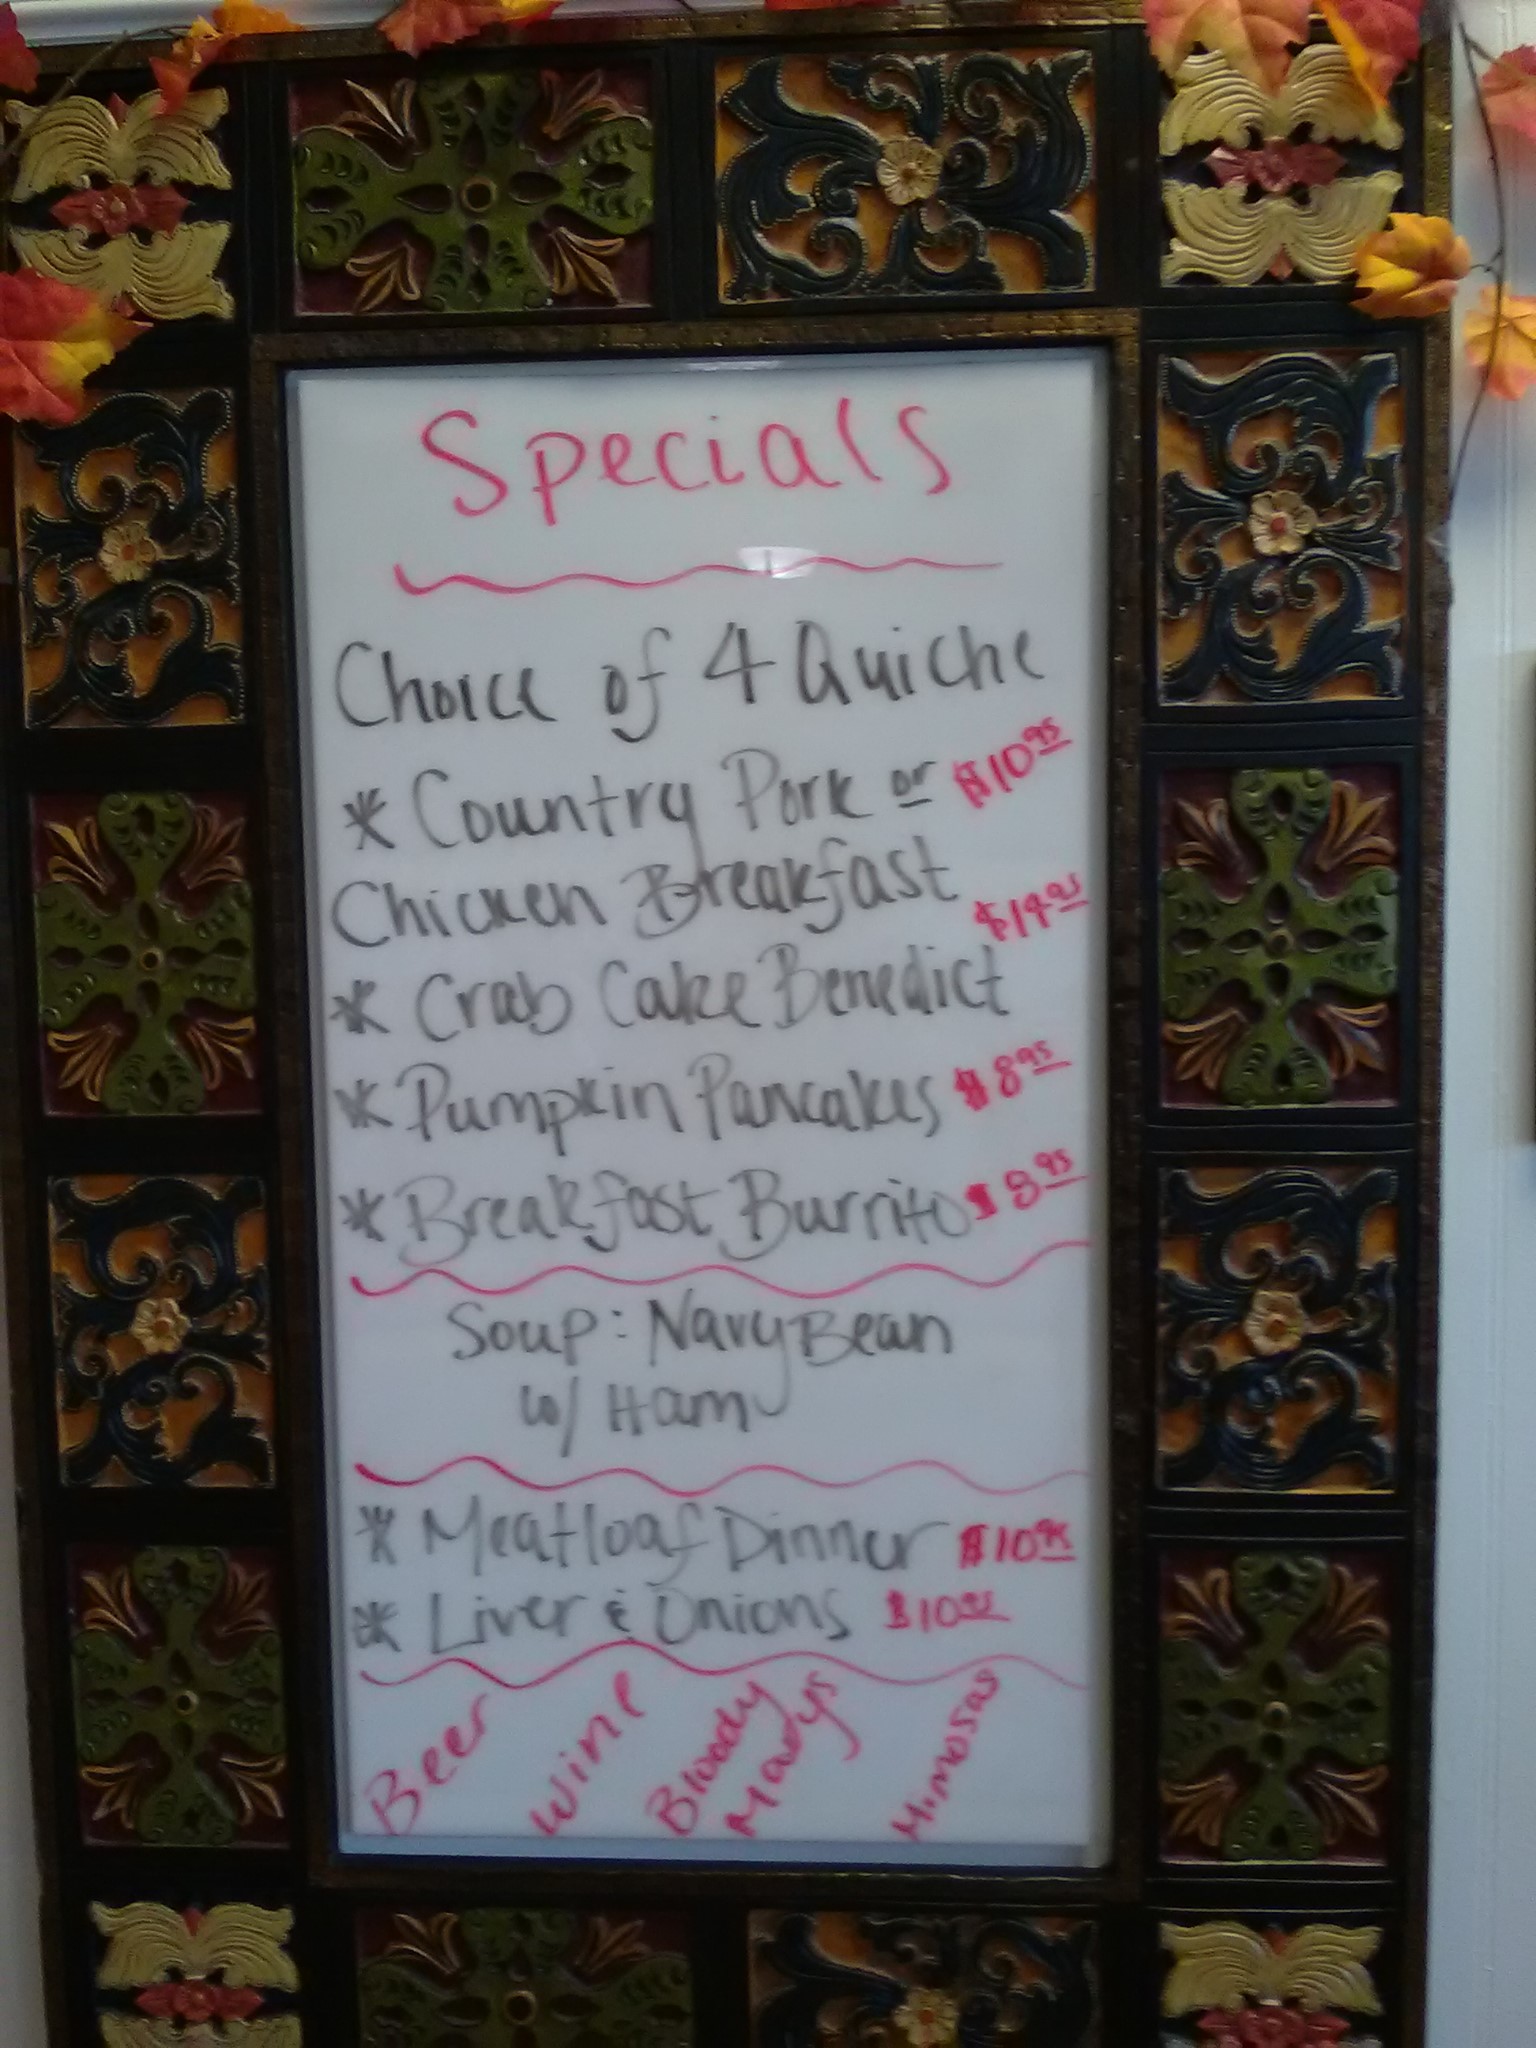 Specials
Choice of 4 Quiche
* Country Pork or $10.95
Chicken Breakfast
$14.95
* Crab Cake Benedict
* Pumpkin Pancakes $8.95
* Breakfast Burrito $8.95
Soup: Navy Bean
w/ Ham
* Meatloaf Dinner $10.95
* Liver & Onions $10.95
Beer
Wine
Bloody
Marys
Mimosas